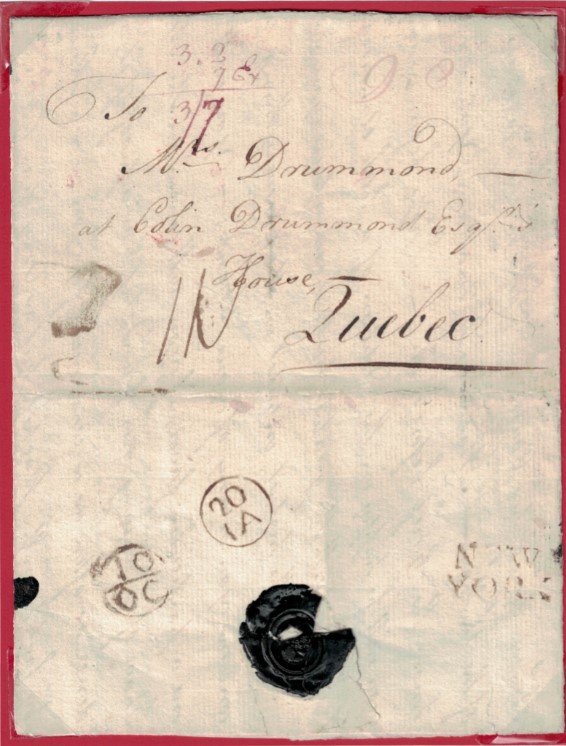 3.2
To
3/7
Mrs. Drummond,
at Colin Drummond Esqrs
House,
Quebec
20
IA
10
OC
NEW
YORK